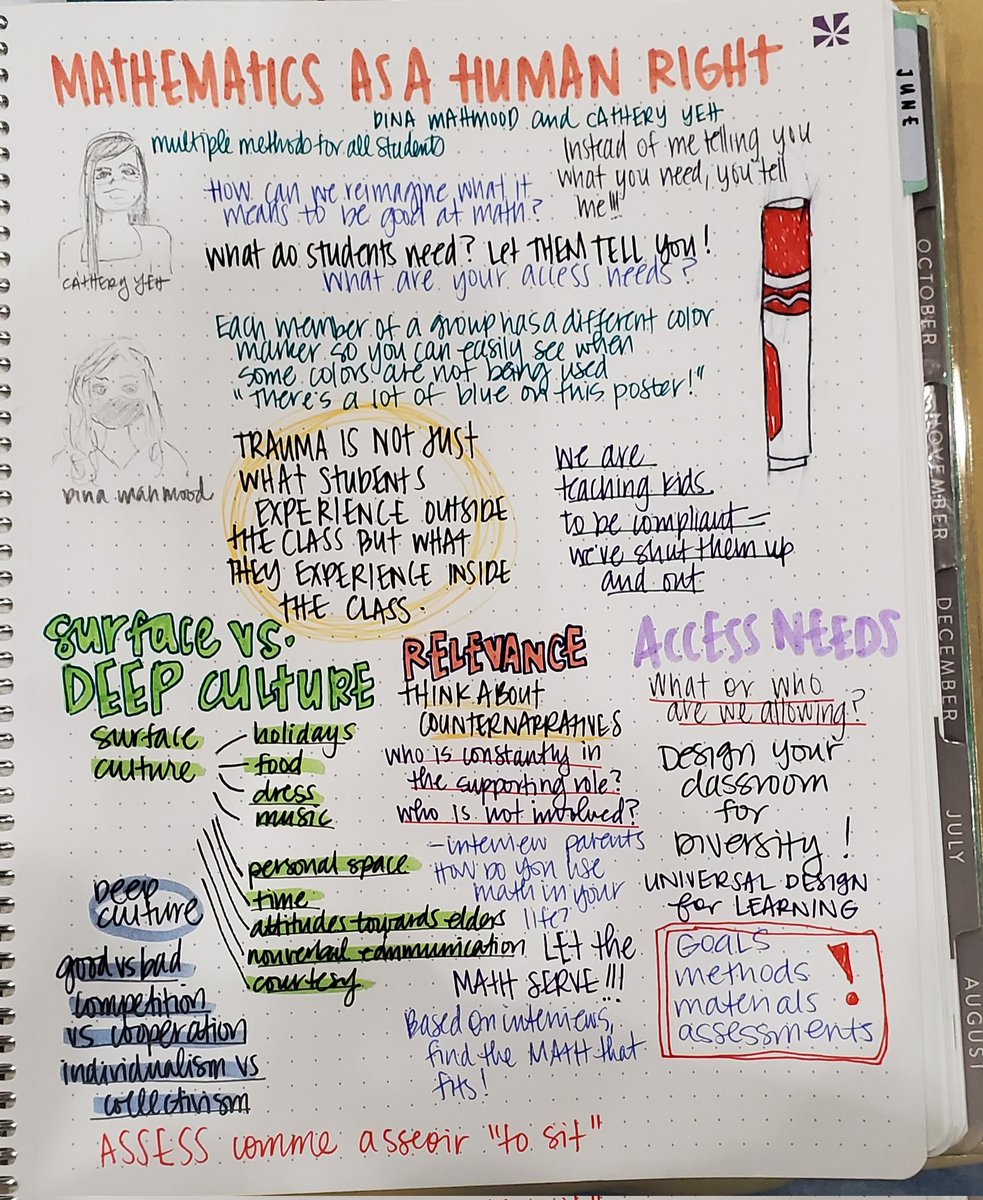 MATHEMATICS AS A HUMAN RIGHT
DINA MAHMOOD and CATHERY YEH
multiple methods for all students
Instead of me telling you
what you need, you tell
me!!!
How can we reimagine what it
means to be good at math?
what do students need? Let THEM TELL YOU!
what are your access needs?
CATHERY YEH
Each member of a group has a different color
marker so you can easily see when
some colors are not being used
"There's a lot of blue on this poster!"
Dina Mahmood
TRAUMA IS NOT JUST
WHAT STUDENTS
EXPERIENCE OUTSIDE
THE CLASS BUT WHAT
THEY EXPERIENCE INSIDE
THE CLASS.
we are
teaching kids
to be compliant =
we've shut them up
and out
Surface vs.
DEEP CULTURE
surface
culture
holidays
food
dress
music
personal space
time
attitudes towards elders
nonverbal communication
courtesy
Deep
culture
good vs bad
competition
vs cooperation
individualism vs
collectivism
RELEVANCE
THINK ABOUT
COUNTERNARRATIVES
who is constantly in
the supporting role?
who is not involved?
- interview parents
How do you use
math in your
life?
LET the
MATH SERVE!!!
Based on interviews,
find the MATH that
fits!
ACCESS NEEDS
what or who
are we allowing?
Design your
classroom
for
Diversity!
UNIVERSAL DESIGN
for LEARNING
GOALS
methods
materials
assessments
!
ASSESS comme asseoir "to sit"
JUNE
OCTOBER
NOVEMBER
DECEMBER
JULY
AUGUST